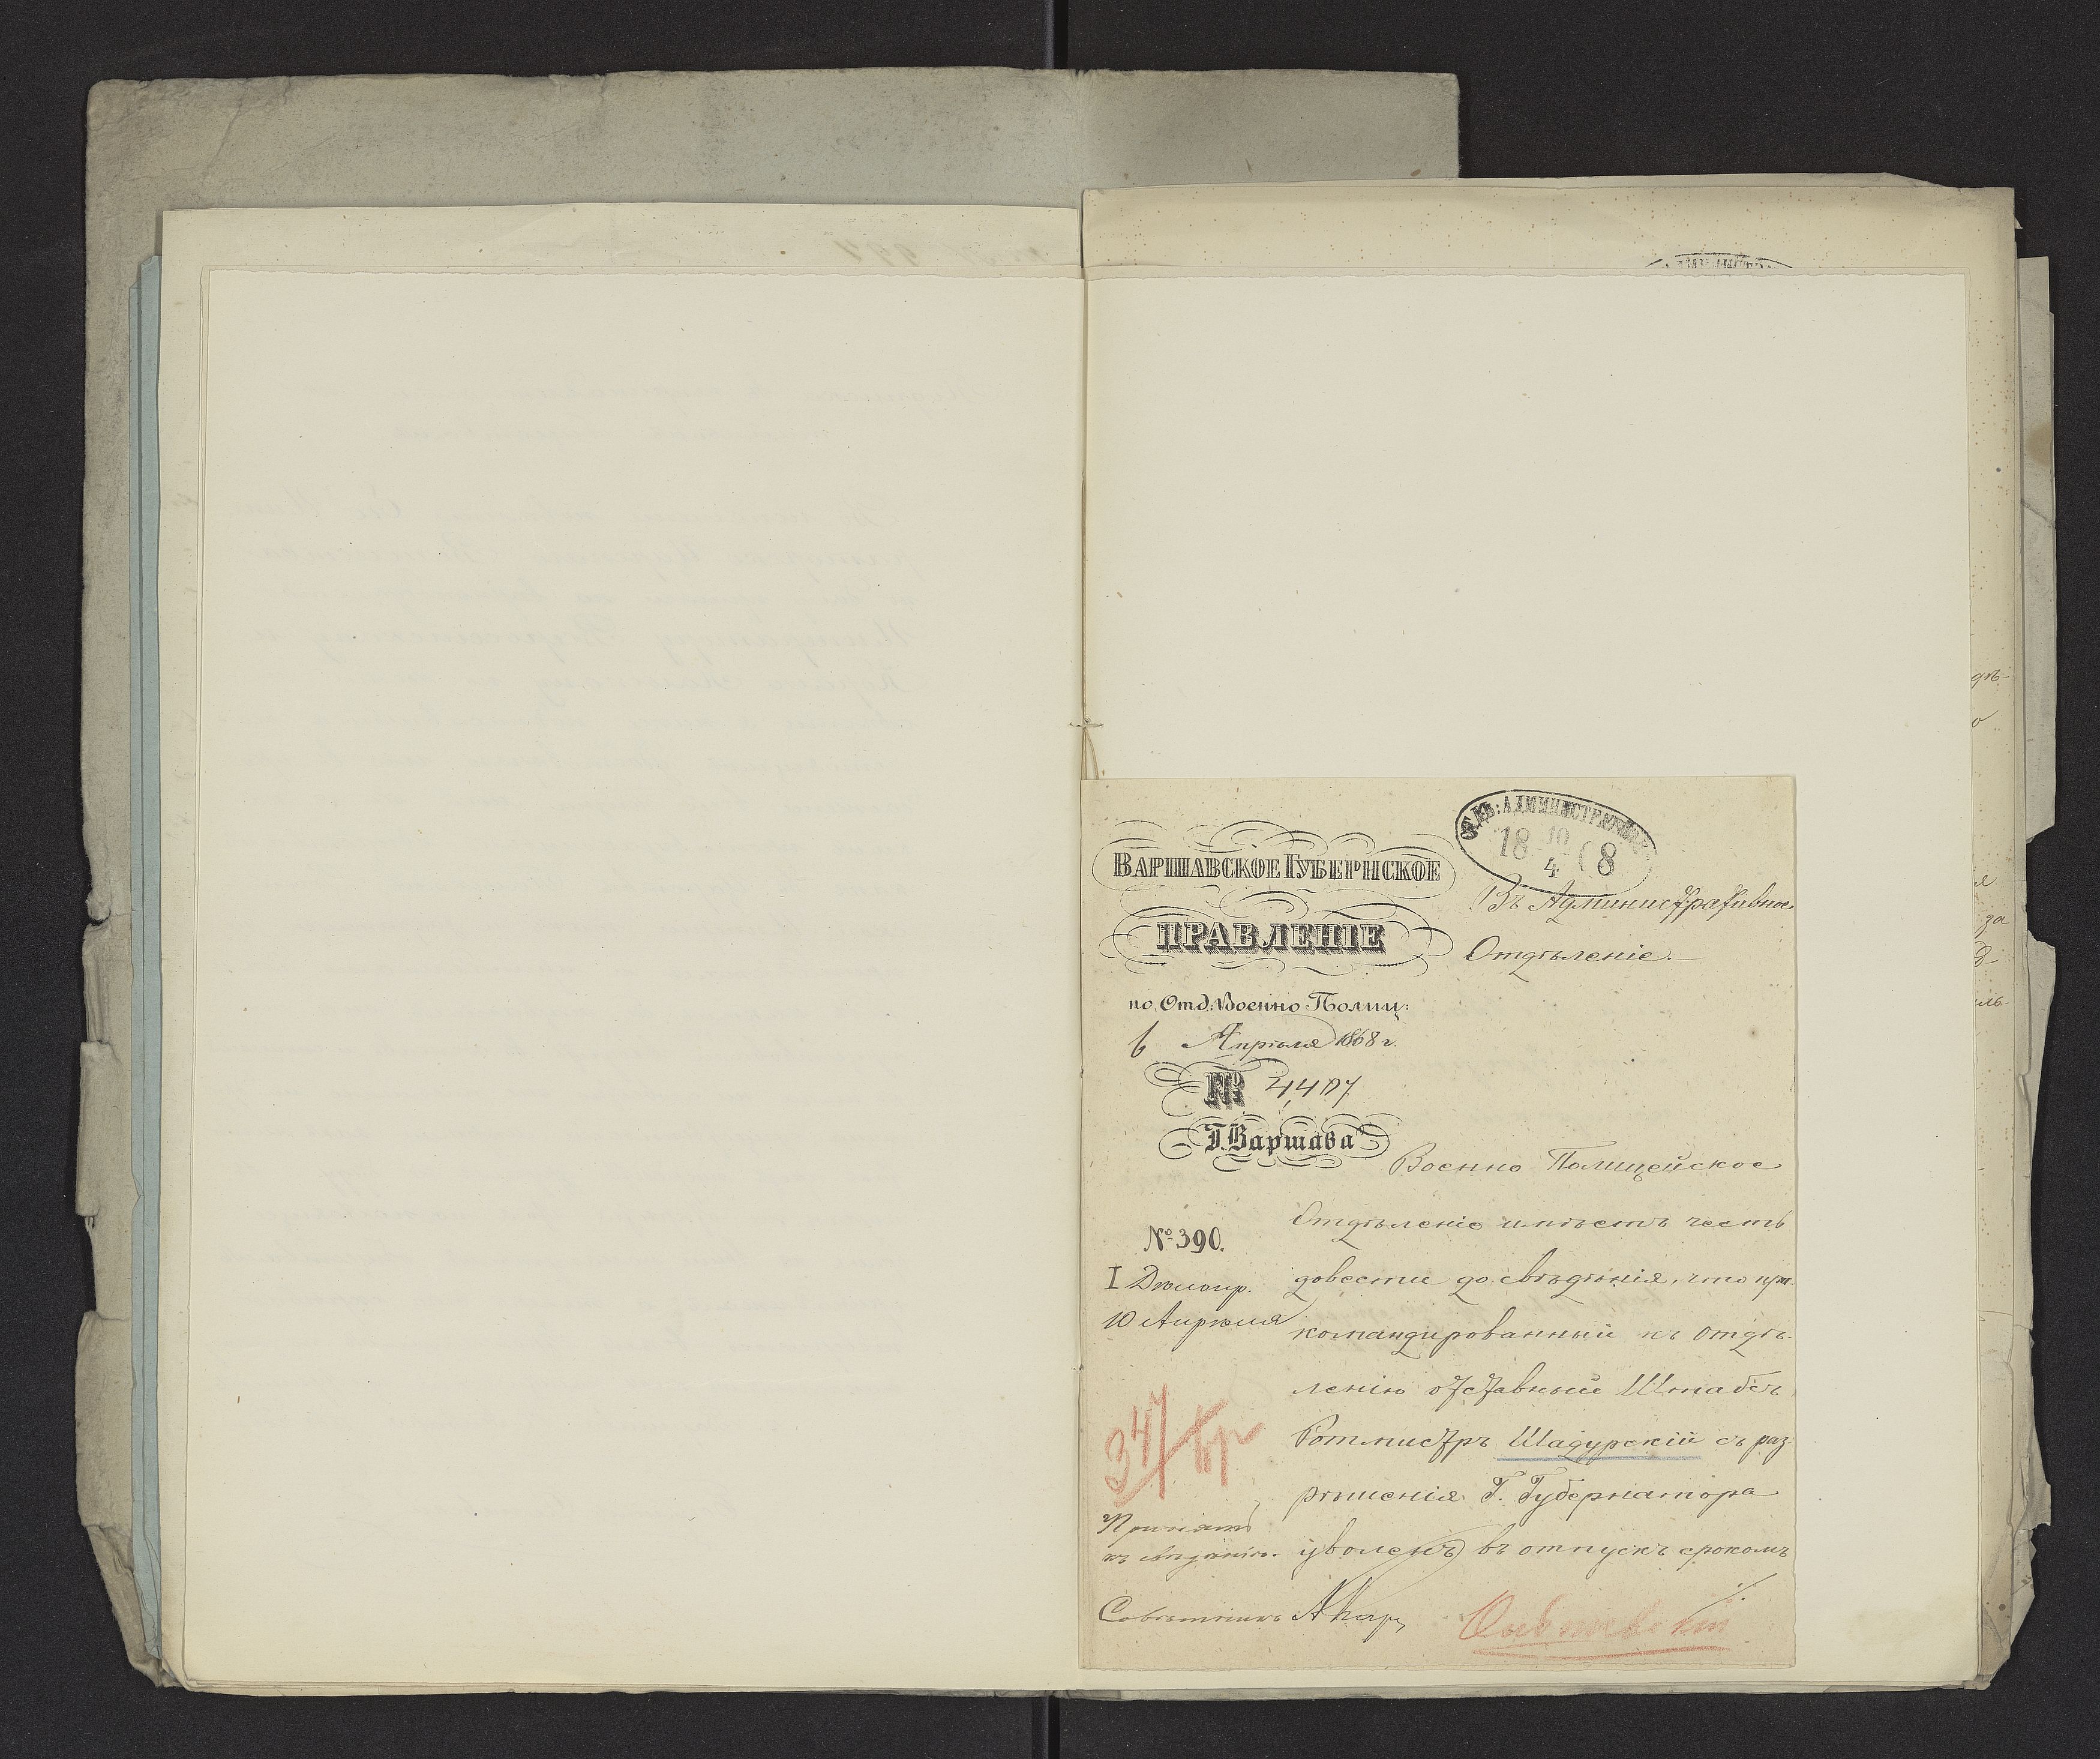 ОТДѢЛ: АДМИНИСТРАТИВ
18 10/4 68
ВАРШАВСКОЕ ГУБЕРНСКОЕ
ПРАВЛЕНІЕ
Въ Административное
Отдѣленіе.—
по Отд: Военно Полиц:
6 Апрѣля 1868 г.
№ 4407
Г. Варшава
Военно Полицейское
Отдѣленіе имѣетъ честь
№ 390.
довести до свѣдѣнія, что при-
I Дѣлопр.
10 Апрѣля
командированный къ Отдѣ-
ленію отставный Штабсъ
Ротмистръ Шадурскій съ раз-
347/
рѣшенія Г. Губернатора
Принять
къ свѣдѣнію.
уволенъ въ отпускъ срокомъ
Совѣтникъ